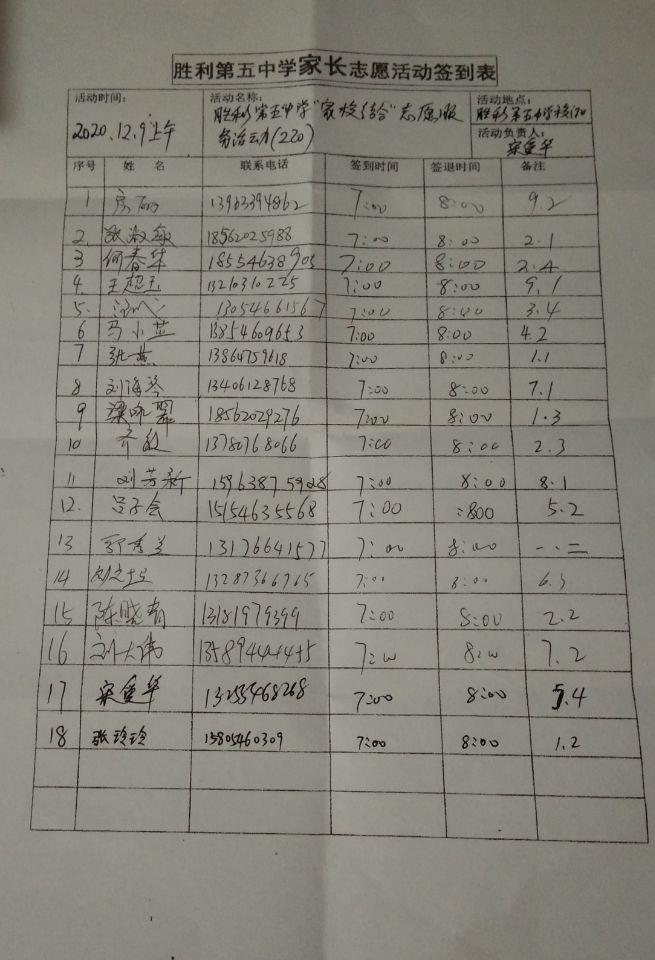 胜利第五中学家长志愿活动签到表
活动时间: 2020.12.9上午
活动名称: 胜利第五中学"家校结合"志愿服务活动(220)
活动地点: 胜利第五中学校门口
活动负责人: 宋重华
序号 姓 名 联系电话 签到时间 签退时间 备注
1 13963394862 7:00 8:00 9.2
2. 张淑敏 18562025988 7:00 8:00 2.1
3 何春华 18554638903 7:00 8:00 2.4
4. 王超玉 13210310225 7:00 8:00 9.1
5. 13054661567 7:00 8:00 3.4
6 马小芸 13854609653 7:00 8:00 4.2
7 张燕 13864759618 7:00 8:00 1.1
8 刘海琴 13406128768 7:00 8:00 7.1
9 18562029276 7:00 8:00 1.3
10 齐敏 13780768066 7:00 8:00 2.3
11 刘芳新 7:00 8:00 8.1
12. 吕子会 15154635568 7:00 :800 5.2
13 郭秀兰 13176641577 7:00 8:00 一.二
14 13287366765 7:00 8:00 6.3
15 陈晓有 13181979399 7:00 8:00 2.2
16 刘大伟 7:00 8:00 7.2
17 宋重华 13255468268 7:00 8:00 5.4
18 张玲玲 15805460309 7:00 8:00 1.2